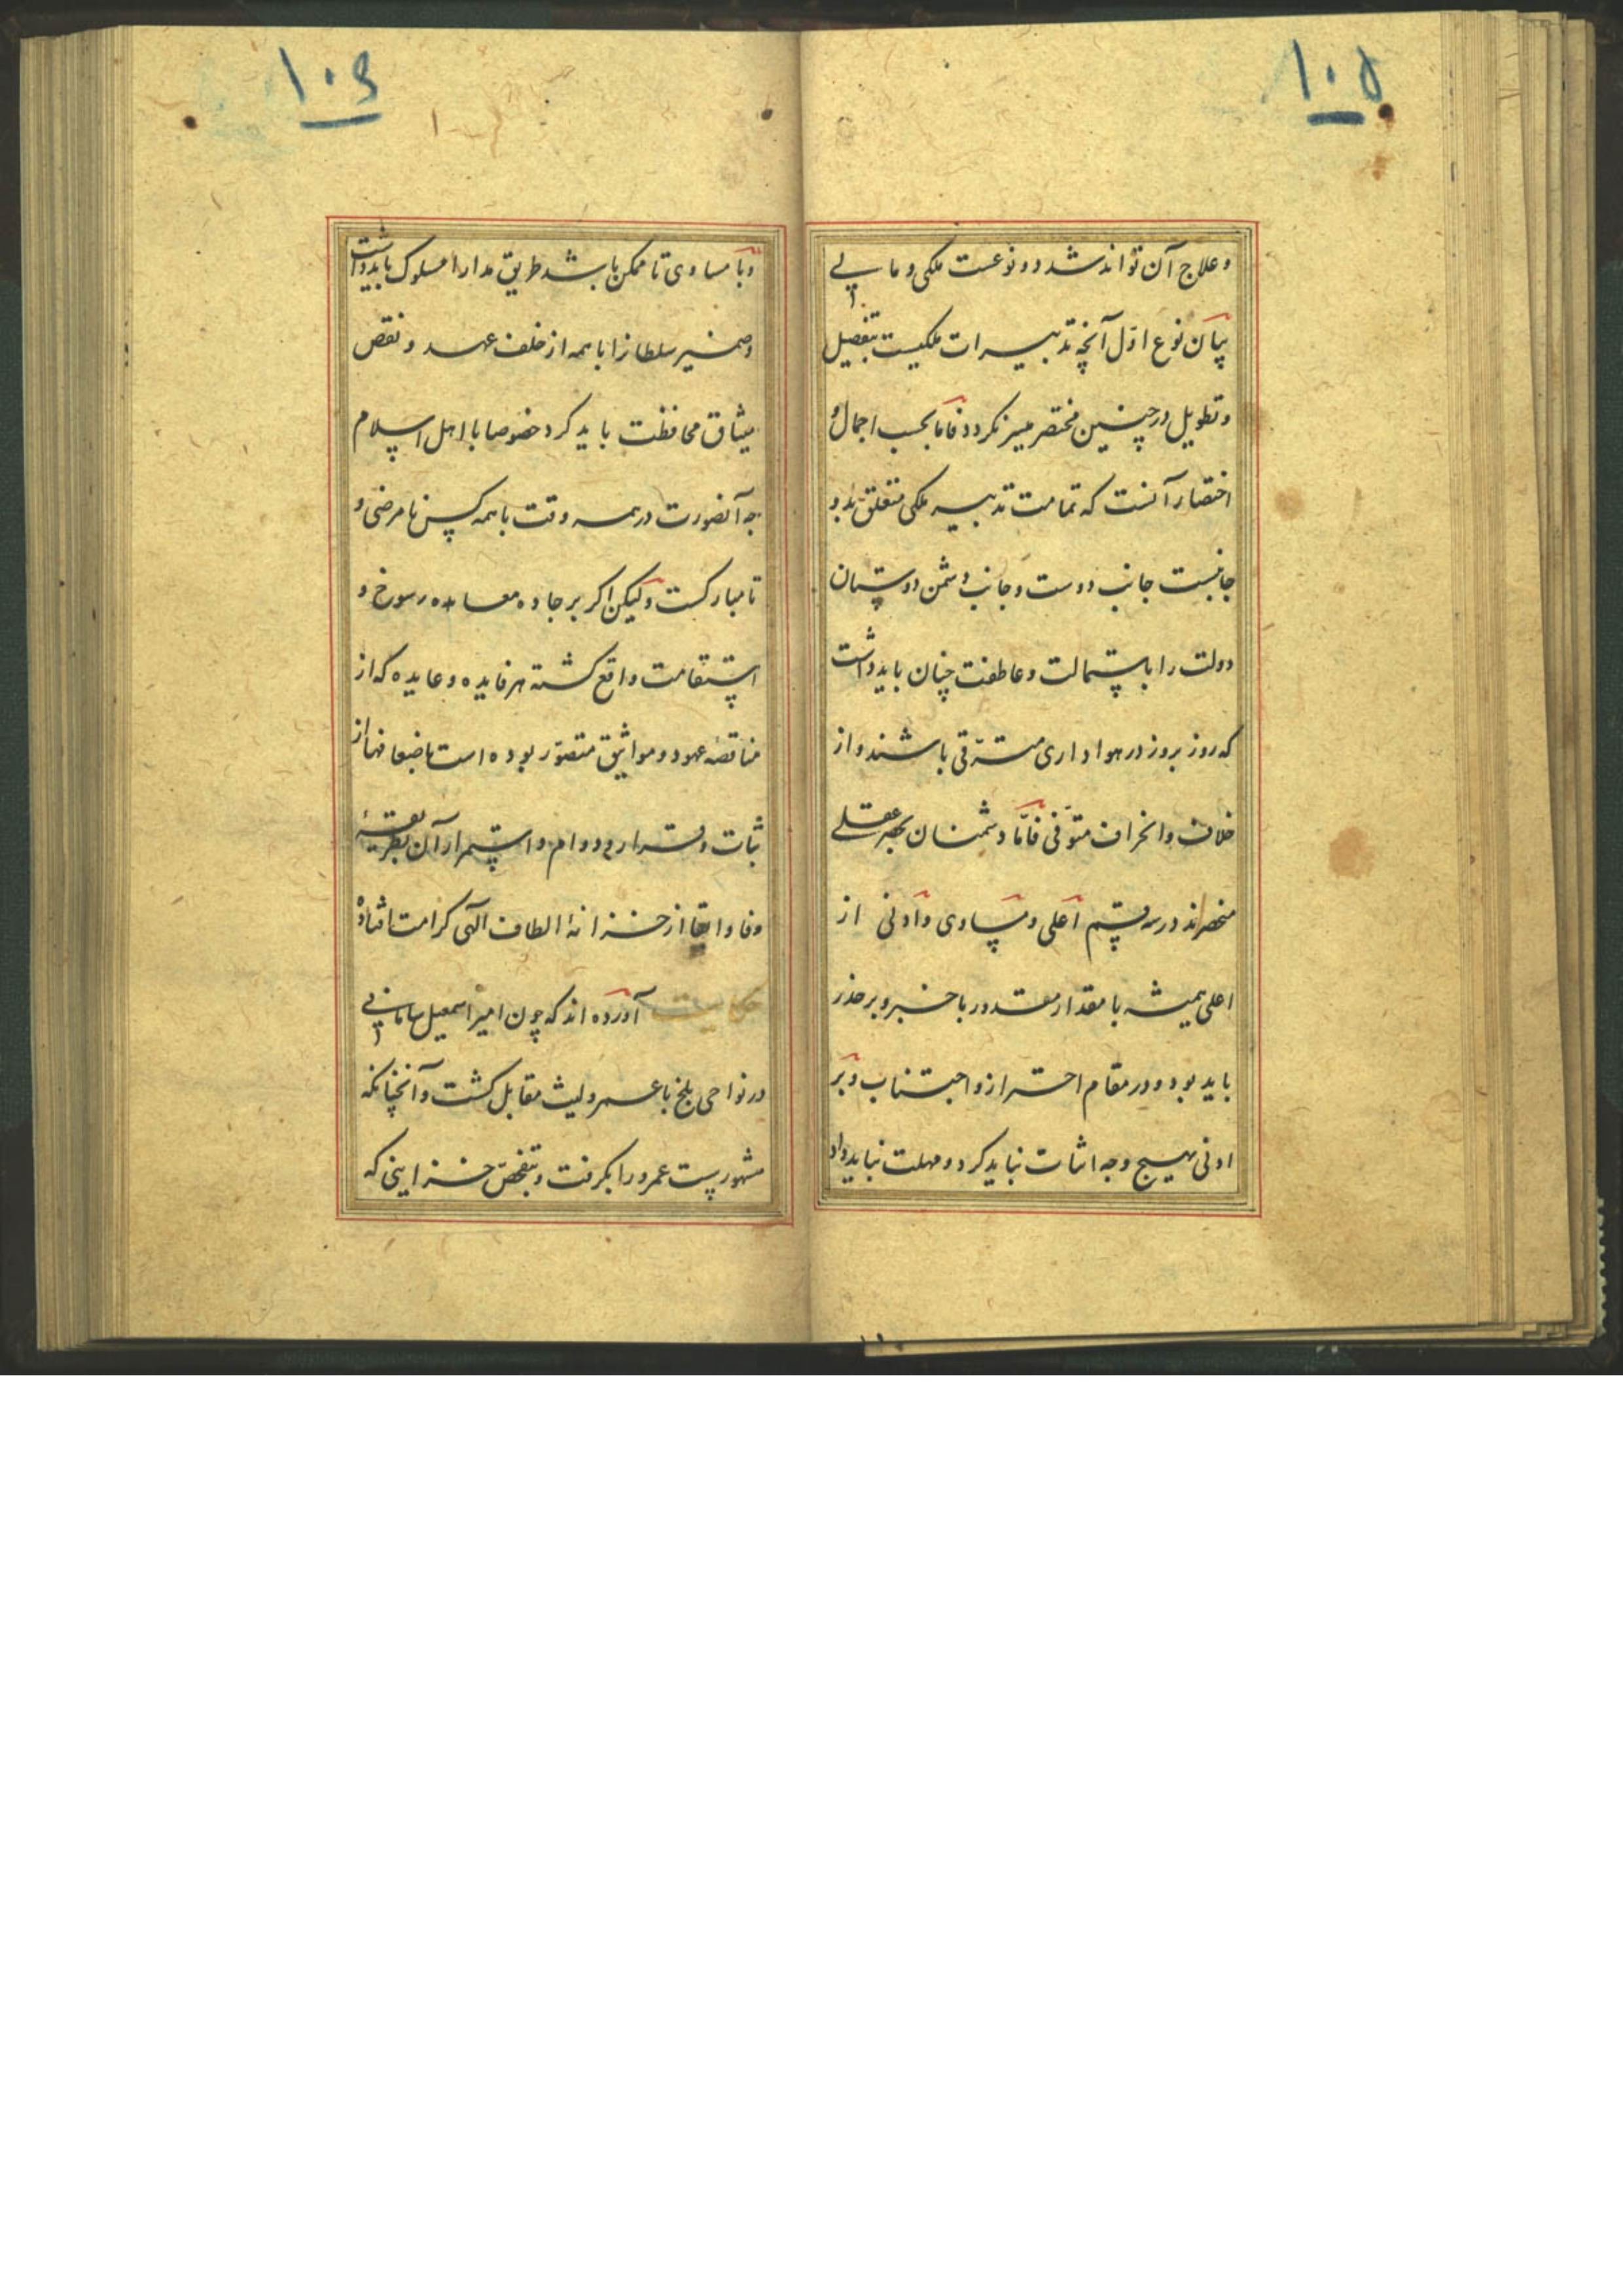 ۱۰۵
و علاج آن تواند شد دو نوعست ملکی و مالی
بیان نوع اوّل آنچه تدبیرات ملکیست بتفصیل
و تطویل در چنین مختصر میسر نکردد فاما بحسب اجمال و
اختصار آنست که تمامت تدبیر ملکی متعلق بدو
جانبست جانب دوست و جانب دشمن دوستان
دولت را باستمالت و عاطفت چنان باید داشت
که روز بروز در هواداری مترقی باشند و از
خلاف و انحراف متوقی فامّا دشمنان بحصر عقلے
منحصراند در سه قسم اعلی و مساوی و ادنی از
اعلی همیشه با مقدار مقدور با خبر و بر حذر
باید بود و در مقام احتراز و اجتناب و بر
ادنی بهیچ وجه اثبات نباید کرد و مهلت نباید داد
۱۰۶
و با مساوی تا ممکن باشد طریق مدارا مسلوک باید داشت
و ضمیر سلطانرا با همه از خلف عهد و نقض
میثاق محافظت باید کرد خصوصا با اهل اسلام
چه آنصورت در همه وقت با همه کس نامرضی و
نامبارکست و لیکن اکر بر جاده معاهده رسوخ و
استقامت واقع کشته هر فایده و عایده که از
مناقضه عهود و مواثیق متصوّر بوده است باضعافها از
ثبات و قرار و دوام و استمرار آن بطریقهٔ
وفا و ابقا از خزانهٔ الطاف الهی کرامت افتاده
حکایت آورده اند که چون امیر اسمعیل سامانی
در نواحی بلخ با عمرو لیث مقابل کشت و آنچنانکه
مشهورست عمرو را بکرفت و بتفحص خزاینی که